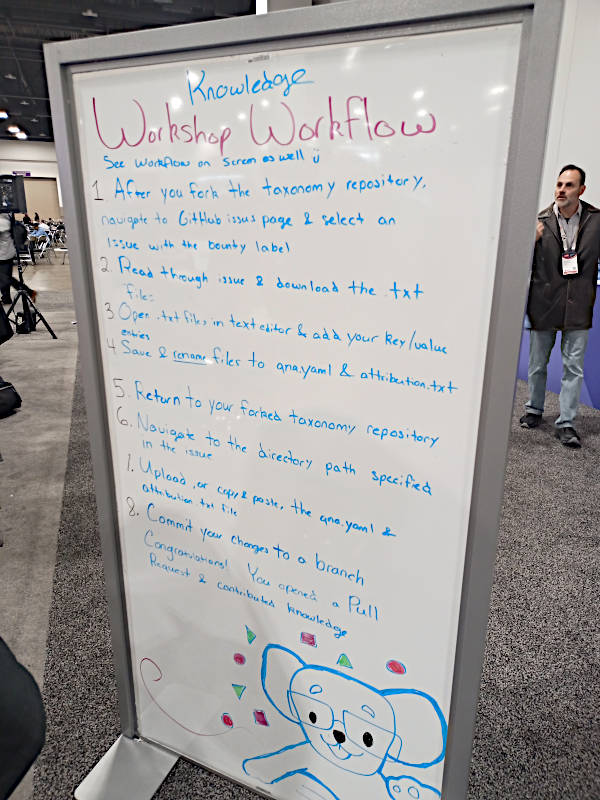 Knowledge
Workshop Workflow
See workflow on screen as well ü
1 After you fork the taxonomy repository,
navigate to GitHub issus page & select an
issue with the bounty label
2. Read through issue & download the .txt
files
3 Open .txt files in text editor & add your key/value
entries
4. Save & rename files to qna.yaml & attribution.txt
5. Return to your forked taxonomy repository
6. Navigate to the directory path specified
in the issue
7. Upload, or copy & paste, the qna.yaml &
attribution.txt file
8. Commit your changes to a branch
Congratulations! You opened a Pull
Request & contributed knowledge